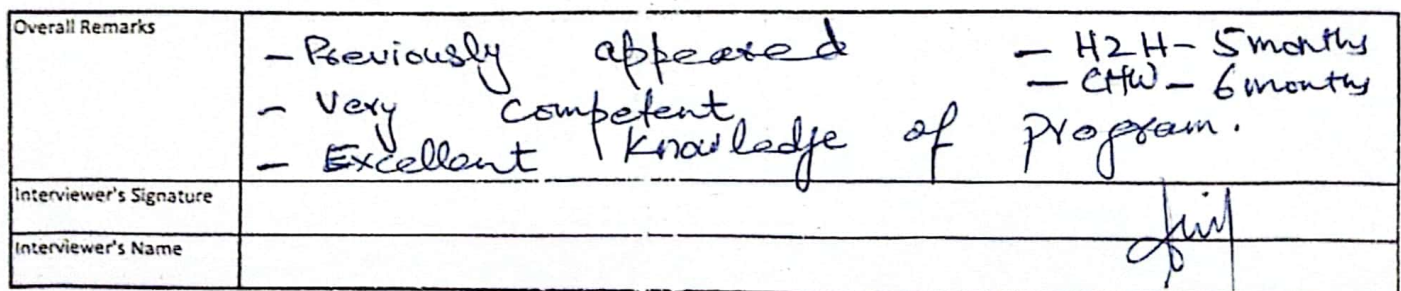 Overall Remarks
- Previously appeared - H2H - 5 months
- CHW - 6 months
- Very competent
- Excellent knowledge of program.
Interviewer's Signature
Interviewer's Name